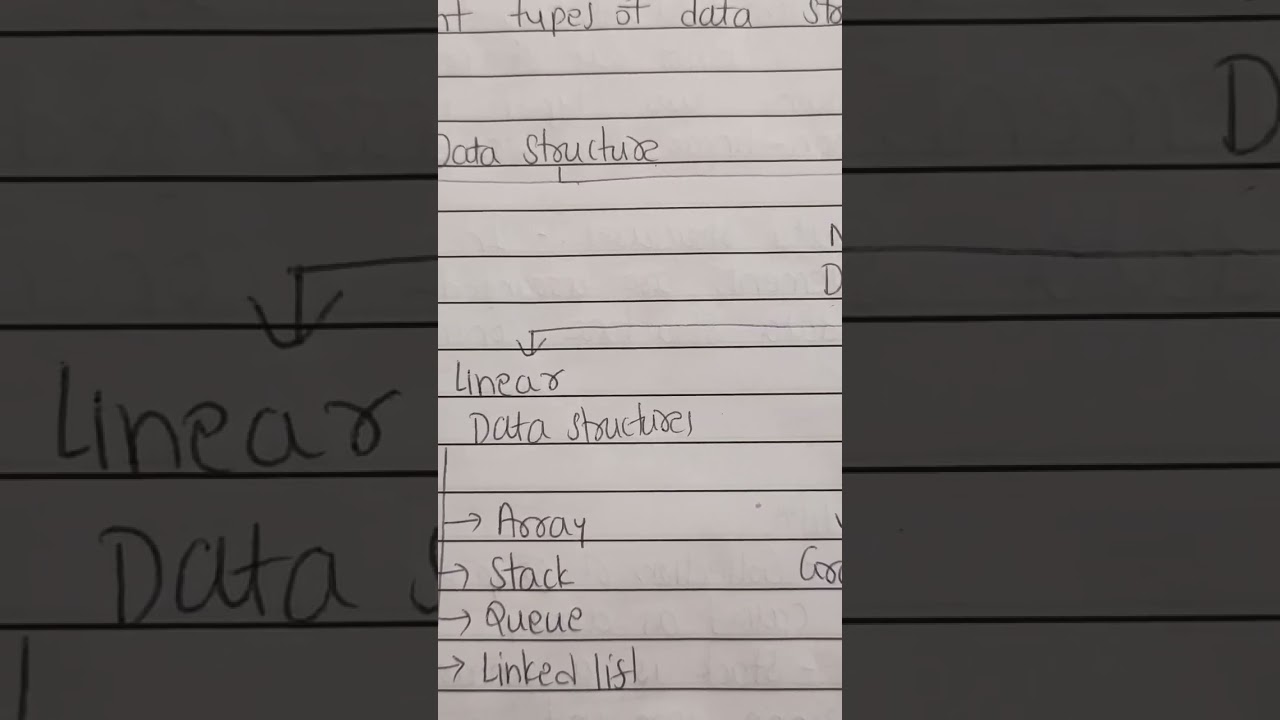 types of data
Data Structure
N
D
Linear
Data Structures
→ Array
→ Stack
→ Queue
→ Linked list